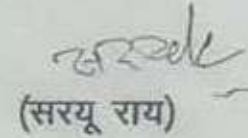 (सरयू राय)